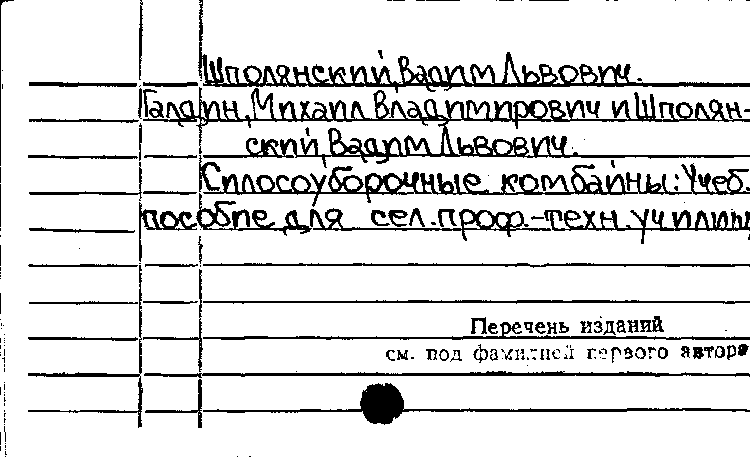 Шполянский, Вадим Львович.
Галдин, Михаил Владимирович и Шполян-
ский, Вадим Львович.
Силосоуборочные комбайны: Учеб.
пособие для сел. проф.-техн. училищ
Перечень изданий
см. под фамилией первого автора